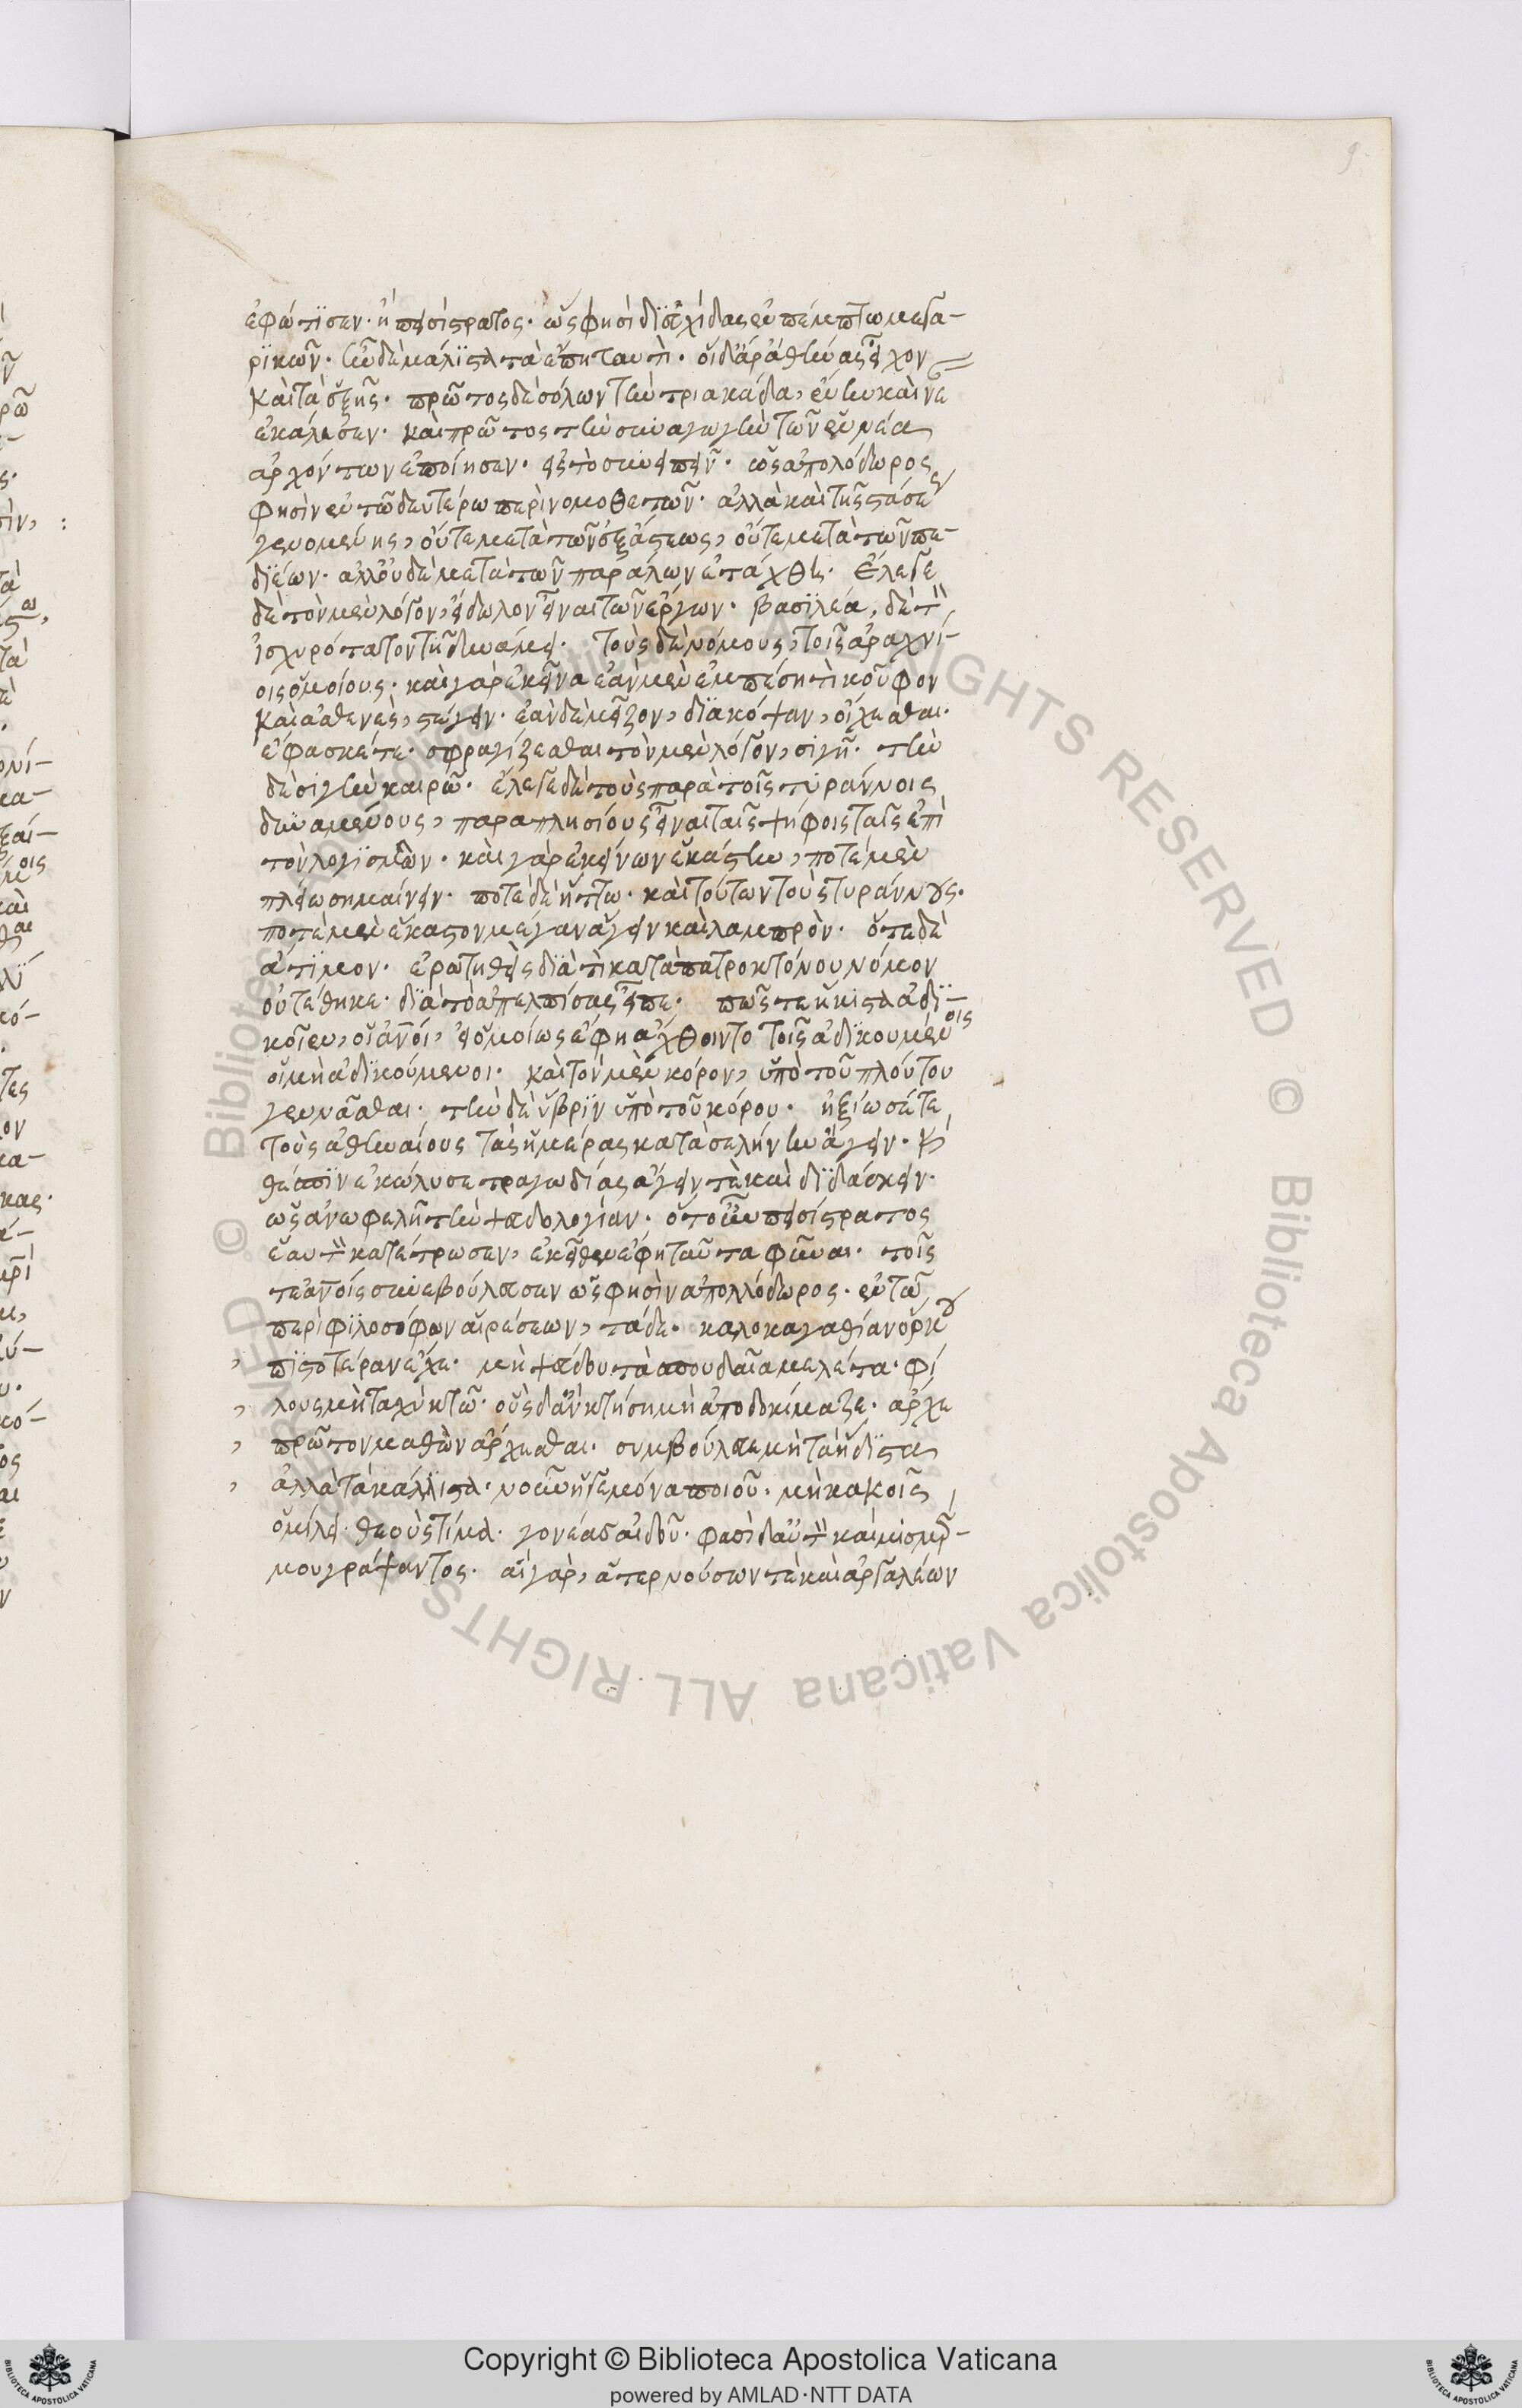 ἐφώτισεν. ἢ πεισίστρατος. ὥς φησι διευχίδας ἐν πέμπτω μεγα-
ρικῶν. ἦν δὲ μάλιστα τὰ ἔπη ταυτί. οἳ δ' ἄρ' ἀθήνας εἶχον
καὶ τὰ ἑξῆς. πρῶτος δὲ σόλων τὴν τριακάδα, ἔνην καὶ νέ
ἐκάλεσεν. καὶ πρῶτος τὴν συναγωγὴν τῶν ἐννέα
ἀρχόντων ἐποίησεν. εἰς τὸ συνειπεῖν. ὡς ἀπολόδωρος
φησὶν ἐν τῶ δευτέρω περὶ νομοθετῶν. ἀλλὰ καὶ τῆς στάσε
γενομένης, οὔτε μετὰ τῶν ἐξ ἄστεως, οὔτε μετὰ τῶν πε-
διέων. ἀλλ' οὐδὲ μετὰ τῶν παράλων ἐτάχθη. ἔλεγε
δὲ τὸν μὲν λόγον, εἴδωλον εἶναι τῶν ἔργων. βασιλέα, δὲ τὸν
ἰσχυρότατον τῆ δυνάμει. τοὺς δὲ νόμους, τοῖς ἀραχνί-
οις ὁμοίους. καὶ γὰρ ἐκεῖνα ἐὰν μὲν ἐμπέση τὶ κοῦφον
καὶ ἀσθενὲς, στέγειν. ἐὰν δὲ μεῖζον, διακόψαν, οἴχεσθαι.
ἔφασκέ τε. σφραγίζεσθαι τὸν μὲν λόγον, σιγῆ. τὴν
δὲ σιγὴν καιρῶ. ἔλεγε δὲ τοὺς παρὰ τοῖς τυράννοις
δυναμένους, παραπλησίους εἶναι ταῖς ψήφοις ταῖς ἐπὶ
τὸν λογισμῶν. καὶ γὰρ ἐκείνων ἑκάστην, ποτὲ μὲν
πλείω σημαίνειν. ποτὲ δὲ ἥττω. καὶ τούτων τοὺς τυράννους.
ποτὲ μὲν ἕκαστον μέγαν ἄγειν καὶ λαμπρὸν. ὁτὲ δὲ
ἄτιμον. ἐρωτηθεὶς διὰ τὶ κατὰ πατροκτόνου νόμον
οὐ τέθηκε. διὰ τὸ ἀπελπίσαι εἶπε. πῶς τε ἥκιστα ἀδι-
κοῖεν, οἱ ἄνοι, εἰ ὁμοίως ἔφη ἄχθοιντο τοῖς ἀδικουμένοις
οἱ μὴ ἀδικούμενοι. καὶ τὸν μὲν κόρον, ὑπὸ τοῦ πλούτου
γεννᾶσθαι. τὴν δὲ ὕβριν ὑπὸ τοῦ κόρου. ἠξίωσέ τε
τοὺς ἀθηναίους τὰς ἡμέρας κατὰ σελήνην ἄγειν. καὶ
θέσπιν ἐκώλυσε τραγωδίας ἄγειν τὲ καὶ διδάσκειν.
ὡς ἀνωφελῆ τὴν ψεδολογίαν. ὅτ' οὖν πεισίστρατος
ἑαυτὸν κατέτρωσεν, ἐκεῖθεν ἔφη ταῦτα φῦναι. τοῖς
τε ἄνοις συνεβούλευσεν ὥς φησὶν ἀπολλόδωρος. ἐν τῶ
περὶ φιλοσόφων αἱρέσεων, τάδε. καλοκαγαθίαν ὅρκου
πιστοτέραν ἔχε. μὴ ψεύδου. τὰ σπουδαῖα μελέτα. φί
λους μὴ ταχὺ κτῶ. οὓς δ' ἂν κτήση μὴ ἀποδοκίμαζε. ἄρχε
πρῶτον μαθὼν ἄρχεσθαι. συμβούλευε μὴ τὰ ἥδιστα
ἀλλὰ τὰ κάλλιστα. νοῦν ἡγεμόνα ποιοῦ. μὴ κακοῖς
ὁμίλει. θεοὺς τίμα. γονέας αἰδοῦ. φασὶ δ' αὐτὸν καὶ μιμνέρ-
μου γράψαντος. αἲ γὰρ, ἄτερ νούσων τὲ καὶ ἀργαλέων